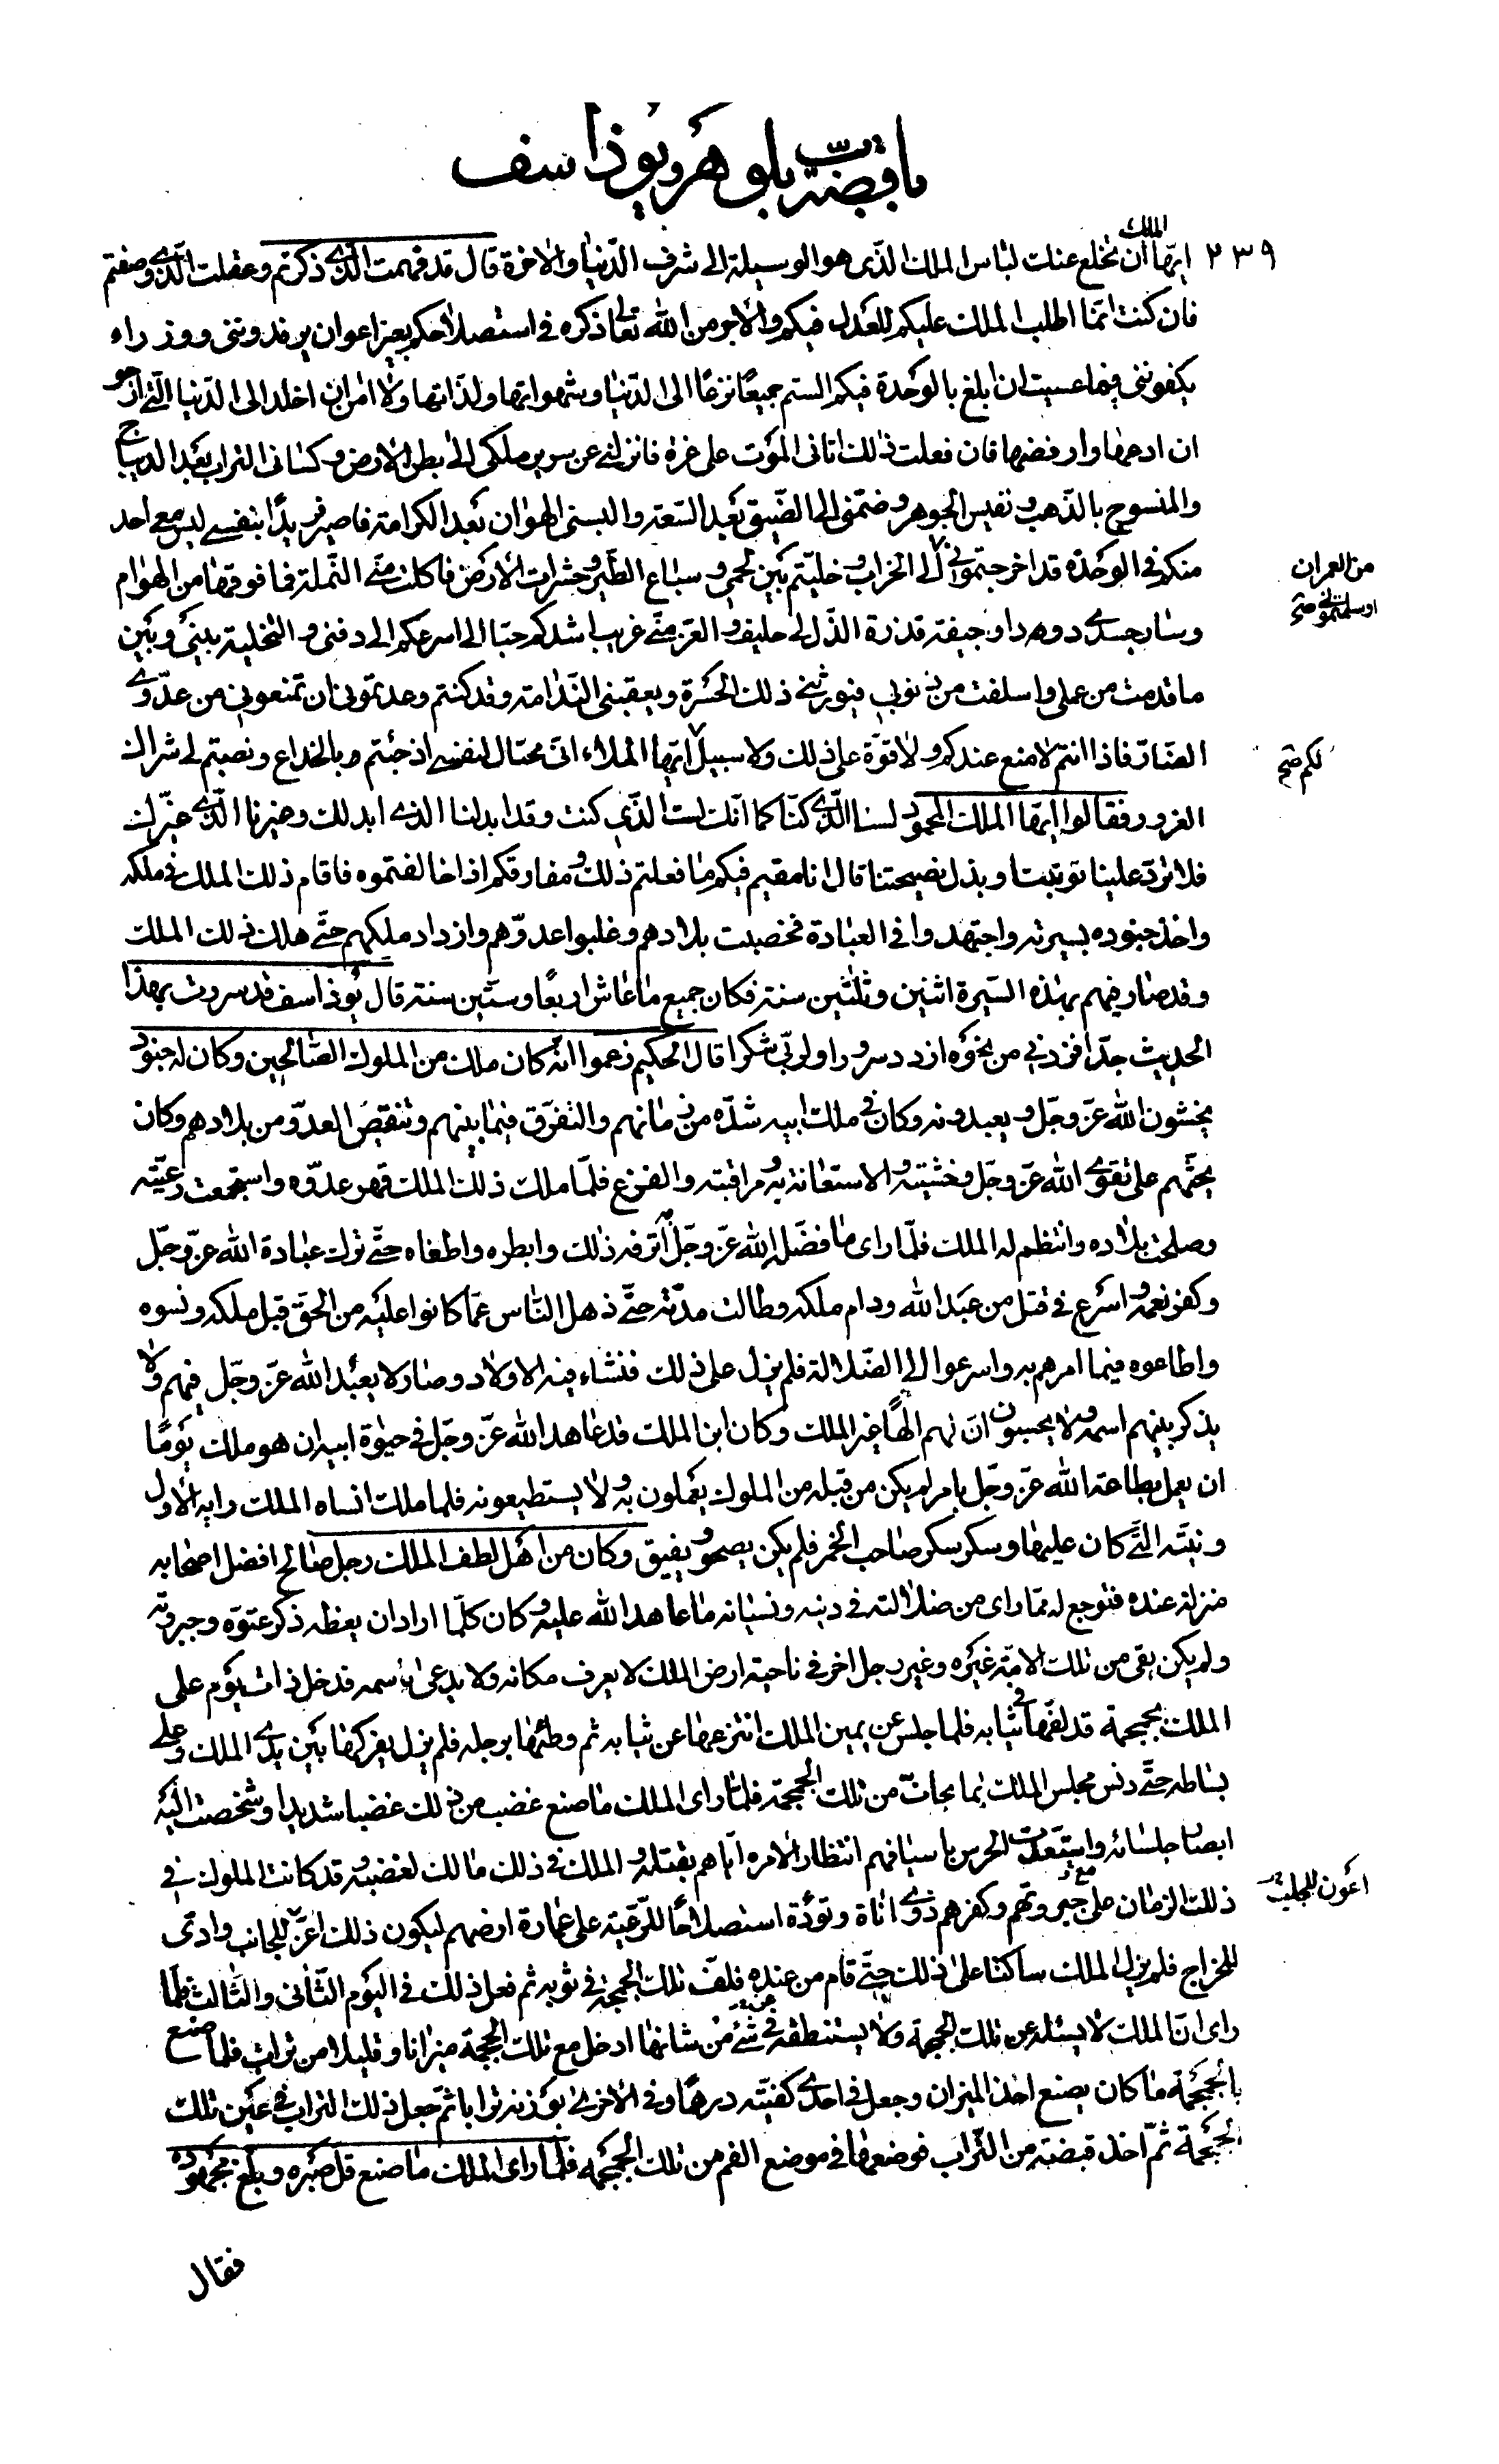 باقصة بلوهر ويوذاسف
٢٣٩ ايها الملك ان تخلع عنك لباس الملك الذى هو الوسيلة الى شرف الدنيا والاخرة قال قد فهمت الذى ذكرتم وعقلت الذى وصفتم
فان كنت انما اطلب الملك عليكم للعدل فيكم والاجر من الله تعالى ذكره فى استصلاحكم بغير اعوان يرفدوننى ووزراء
يكفوننى فما عسيت ان ابلغ بالوحدة فيكم الستم جميعا نزعا الى الدنيا وشهواتها ولذاتها ولا امن ان اخلد الى الدنيا التى ارجو
ان ادعها وارفضها فان فعلت ذلك اتانى الموت على غرة فانزلنى عن سرير ملكى الى بطن الارض وكسانى التراب بعد الديباج
والمنسوج بالذهب ونفيس الجوهر وضمنى الى الضيق بعد السعة والبسنى الهوان بعد الكرامة فاصير فريدا بنفسى ليس معى احد
منكم فى الوحدة قد اخرجتمونى الى الخراب وخليتم بين لحمى وسباع الطير وحشرات الارض فاكلت منى النملة فما فوقها من الهوام
من العمران
اوسلمتمونى صح
وصار جسدى دودا وجيفة قذرة الذل لى حليف والعز منى غريب اشدكم حبا الى اسرعكم الى دفنى والتخلية بينى وبين
ما قدمت من عملى واسلفت من ذنوبى فيورثنى ذلك الحسرة ويعقبنى الندامة وقد كنتم وعدتمونى ان تمنعونى من عدوى
الضار فاذا انتم لا منع عندكم ولا قوة على ذلك ولا سبيل ايها الملاء انى محتال لنفسى اذ جئتم بالخداع ونصبتم لى شراك
لكم صح
الغرور فقالوا ايها الملك المحمود لسنا الذى كنا كما انك لست الذى كنت وقد ابدلنا الذى ابدلك وغيرنا الذى غيرك
فلا ترد علينا توبتنا وبذل نصيحتنا قال انا مقيم فيكم ما فعلتم ذلك ومفارقكم اذا خالفتموه فاقام ذلك الملك فى ملكه
واخذ جنوده بسيرته واجتهدوا فى العبادة فخصبت بلادهم وغلبوا عدوهم وازداد ملكهم حتى هلك ذلك الملك
وقد صار فيهم بهذه السيرة اثنين وثلثين سنة فكان جميع ما عاش اربعا وستين سنة قال يوذاسف قد سررت بهذا
الحديث جدا فزدنى من نحوه ازدد سرورا ولربى شكرا قال الحكيم زعموا انه كان ملك من الملوك الصالحين وكان له جنود
يخشون الله عز وجل ويعبدونه وكان فى ملك ابيه شدة من زمانهم والتفرق فيما بينهم وتنقيص العدو من بلادهم وكان
يحثهم على تقوى الله عز وجل وخشيته والاستعانة به ومراقبته والفزع فلما ملك ذلك الملك قهر عدوه واستجمعت رعيته
وصلحت بلاده وانتظم له الملك فلما راى ما فضل الله عز وجل اترفه ذلك وابطره واطغاه حتى ترك عبادة الله عز وجل
وكفر نعمه واسرع فى قتل من عبد الله ودام ملكه وطالت مدته حتى ذهل الناس عما كانوا عليه من الحق قبل ملكه ونسوه
واطاعوه فيما امرهم به واسرعوا الى الضلالة فلم يزل على ذلك فنشاء فيه الاولاد وصار لا يعبد الله عز وجل فيهم ولا
يذكر بينهم اسمه ولا يحسبون ان لهم الها غير الملك وكان ابن الملك قد عاهد الله عز وجل فى حيوة ابيه ان هو ملك يوما
ان يعمل بطاعة الله عز وجل بامر لم يكن من قبله من الملوك يعملون به ولا يستطيعونه فلما ملك انساه الملك رايه الاول
ونيته التى كان عليها وسكر سكر صاحب الخمر فلم يكن يصحو ويفيق وكان من اهل لطف الملك رجل صالح افضل اصحابه
منزلة عنده فتوجع له مما راى من ضلالته فى دينه ونسيانه ما عاهد الله عليه وكان كلما اراد ان يعظه ذكر عتوه وجبروته
ولم يكن بقى من تلك الامة غيره وغير رجل اخر فى ناحية ارض الملك لا يعرف مكانه ولا يدعى باسمه فدخل ذات يوم على
الملك بجمجمة قد لفها فى ثيابه فلما جلس عن يمين الملك انتزعها عن ثيابه ثم وطئها برجله فلم يزل يفركها بين يدى الملك وعلى
بساطه حتى دنس مجلس الملك بما تحات من تلك الجمجمة فلما راى الملك ما صنع غضب من ذلك غضبا شديدا وشخصت اليه
ابصار جلسائه واستعدت الحرس باسيافهم انتظار الامره اياهم بقتله والملك فى ذلك مالك لغضبه وقد كانت الملوك فى
ذلك الزمان على جبروتهم وكفرهم ذوى اناة وتؤدة استصلاحا للرعية على عمارة ارضهم ليكون ذلك اعز للجانب وادى
اعون للجلب
للخراج فلم يزل الملك ساكتا على ذلك حتى قام من عنده فلف تلك الجمجمة فى ثوبه ثم فعل ذلك فى اليوم الثانى والثالث فلما
راى ان الملك لا يسئله عن تلك الجمجمة ولا يستنطقه فى شئ من شانها ادخل مع تلك الجمجمة ميزانا وقليلا من تراب فلما صنع
بالجمجمة ما كان يصنع اخذ الميزان وجعل فى احدى كفتيه درهما وفى الاخرى بوزنه ترابا ثم جعل ذلك التراب فى عين تلك
الجمجمة ثم اخذ قبضة من التراب فوضعها فى موضع الفم من تلك الجمجمة فلما راى الملك ما صنع قل صبره وبلغ مجهوده
فقال